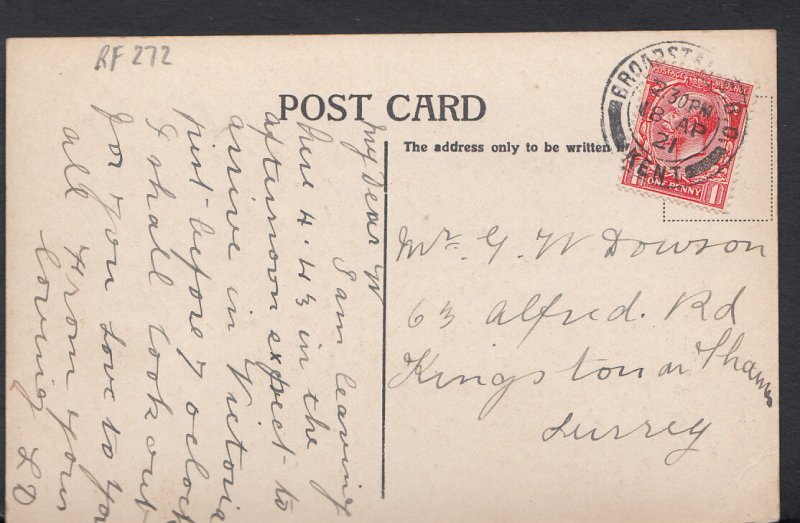 RF 272
POST CARD
The address only to be written
BROADSTA
2 30 PM
18 AP
21
KENT
POSTAGE REVENUE
ONE PENNY
1
My Dear W
I am leaving
here 4.43 in the
afternoon expect to
arrive in Victoria
just before 7 oclock
I shall look out
for you Love to you
all From yours
loving
L D
Mr. G. W Dowson
63 Alfred. Rd
Kingston on Thames
Surrey